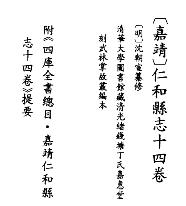 〔嘉靖〕仁和縣志十四卷
〔明〕沈朝宣纂修
清華大學圖書館藏清光緒錢塘丁氏嘉惠堂
刻武林掌故叢編本
附《四庫全書總目·嘉靖仁和縣
志十四卷》提要